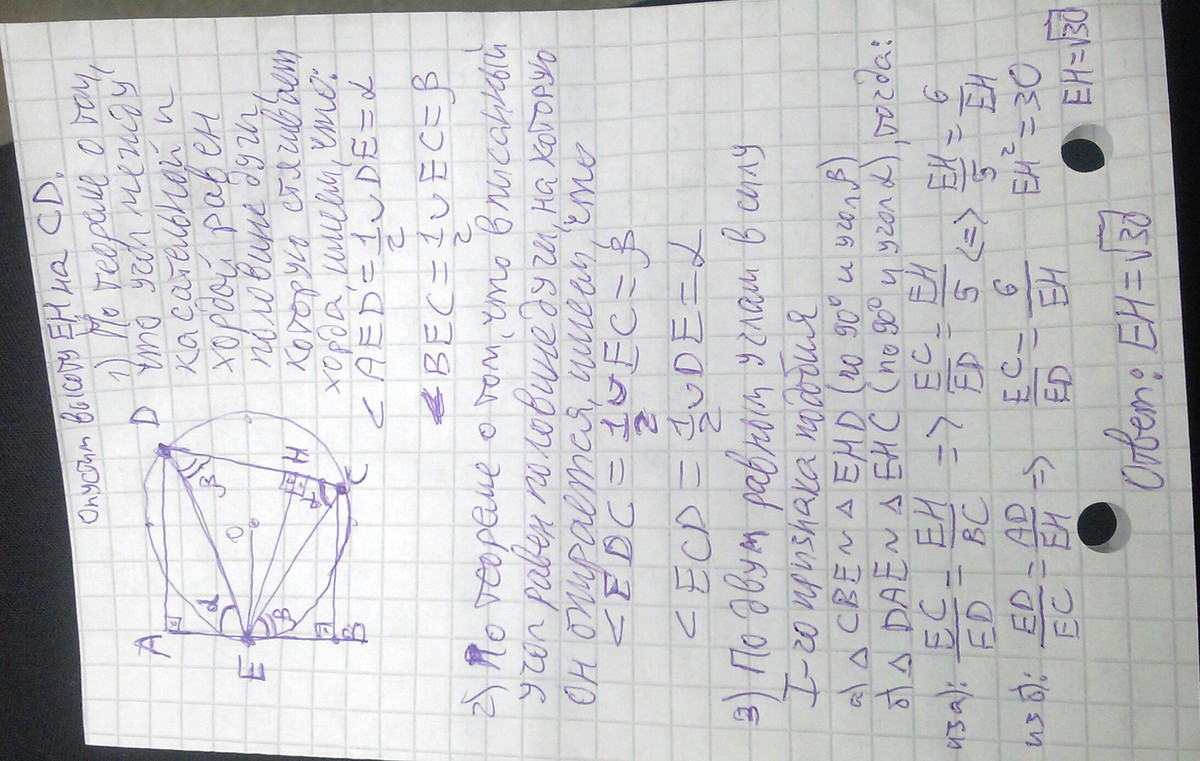 Опустим высоту EH на CD.
1) По теореме о том,
что угол между
касательной и
хордой равен
половине дуги
которую стягивает
хорда имеем, что:
< AED = 1/2 ∪ DE = α
< BEC = 1/2 ∪ EC = β
A
D
α
β
O
H
E
β
α
B
C
2) По теореме о том, что вписанный
угол равен половине дуги, на которую
он опирается, имеем, что
< EDC = 1/2 ∪ EC = β
< ECD = 1/2 ∪ DE = α
3) По двум равным углам в силу
I-го признака подобия
а) △ CBE ~ △ EHD (по 90° и угол β)
б) △ DAE ~ △ EHC (по 90° и угол α), тогда:
из а): EC/ED = EH/BC => EC/ED = EH/5 <=> EH/5 = 6/EH
из б): ED/EC = AD/EH => EC/ED = 6/EH EH² = 30
EH = √30
Ответ: EH = √30